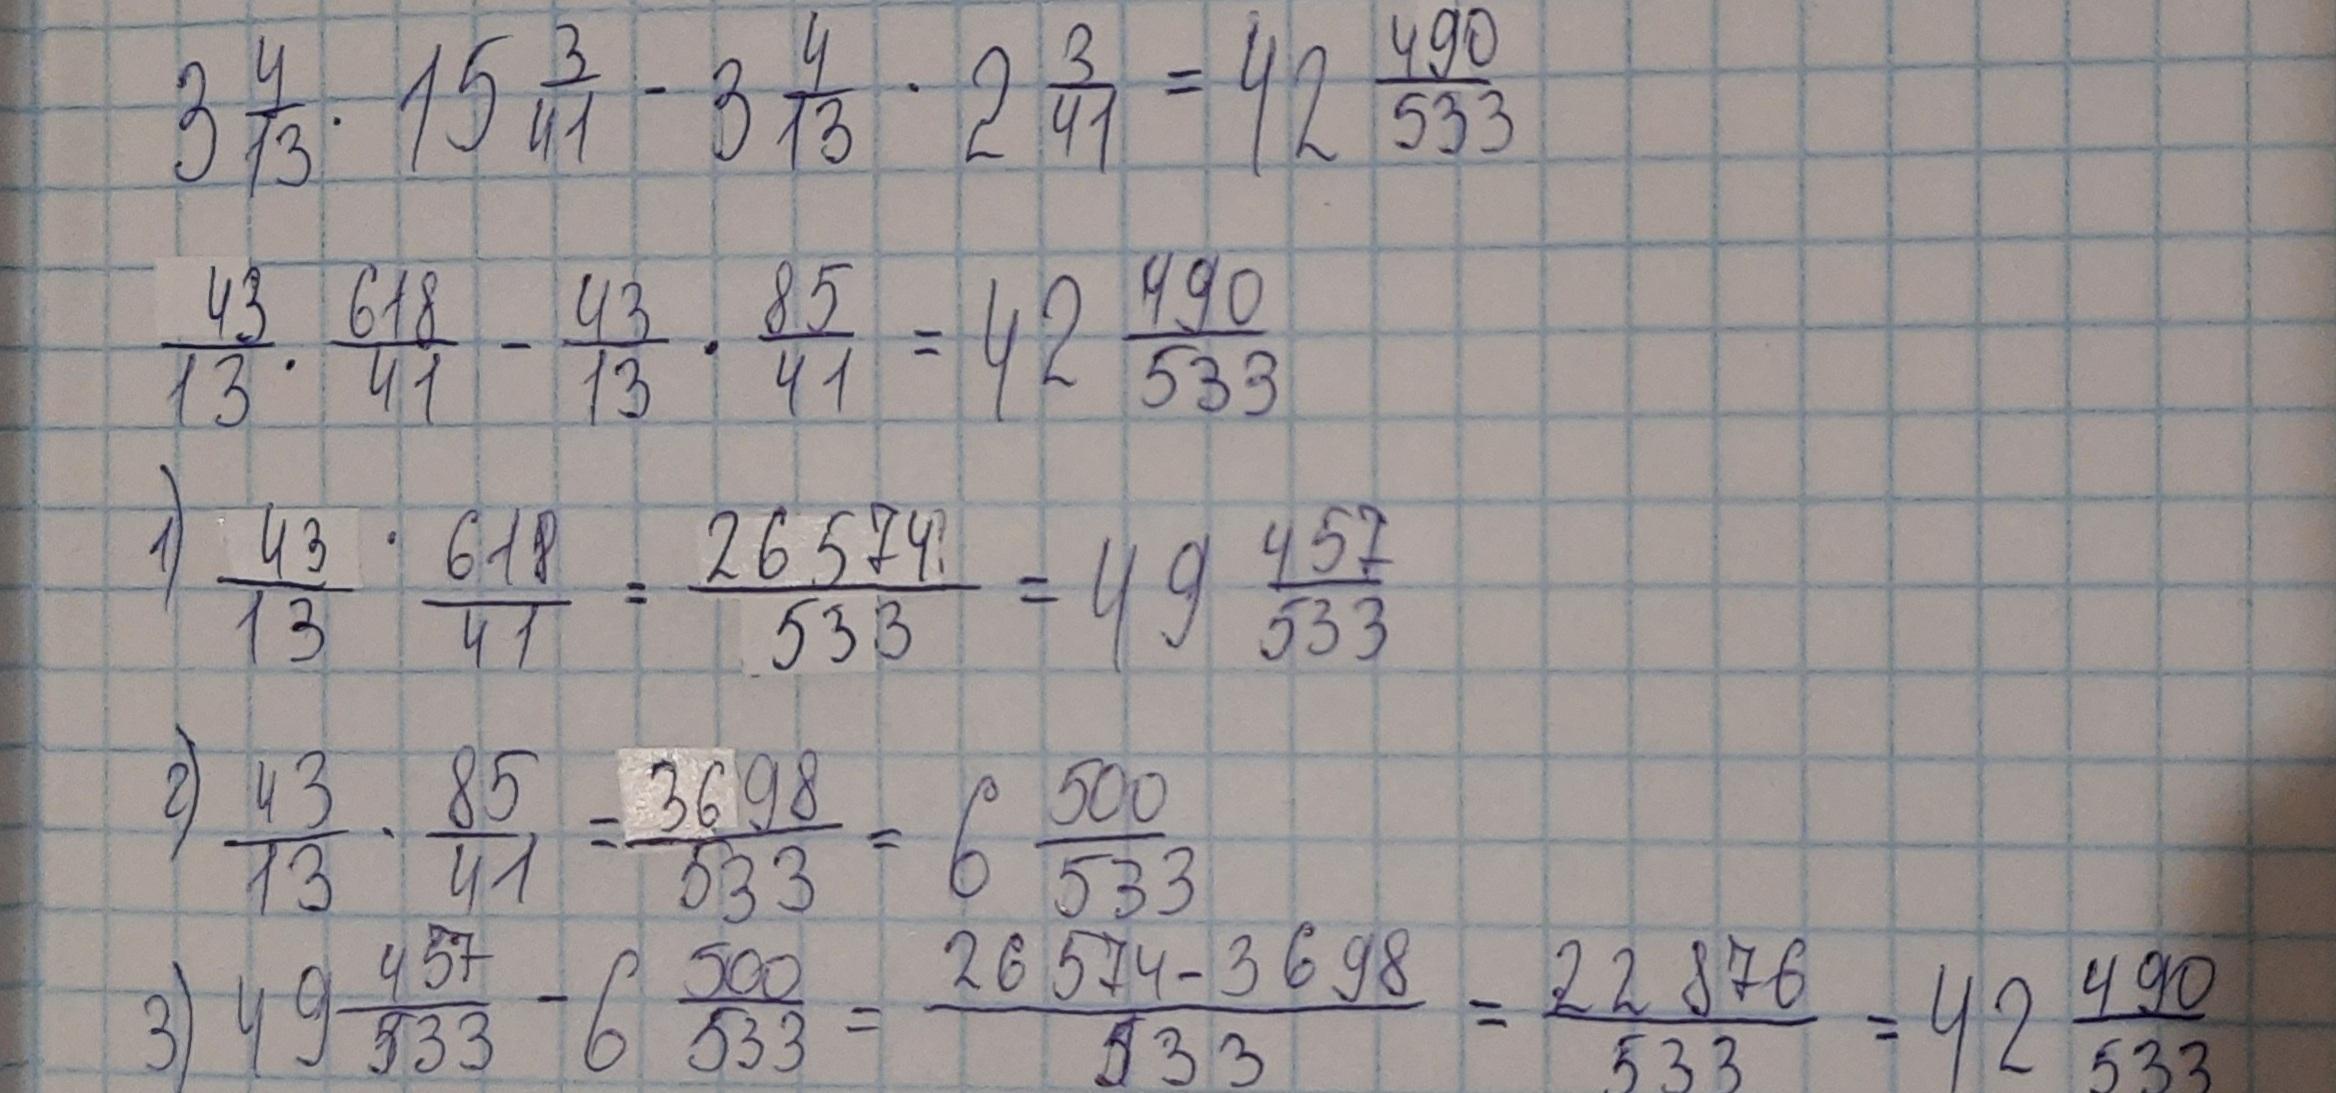 3 4/13 · 15 3/41 - 3 4/13 · 2 3/41 = 42 490/533
43/13 · 618/41 - 43/13 · 85/41 = 42 490/533
1) 43/13 · 618/41 = 26574/533 = 49 457/533
2) 43/13 · 85/41 = 3698/533 = 6 500/533
3) 49 457/533 - 6 500/533 = 26574-3698/533 = 22876/533 = 42 490/533